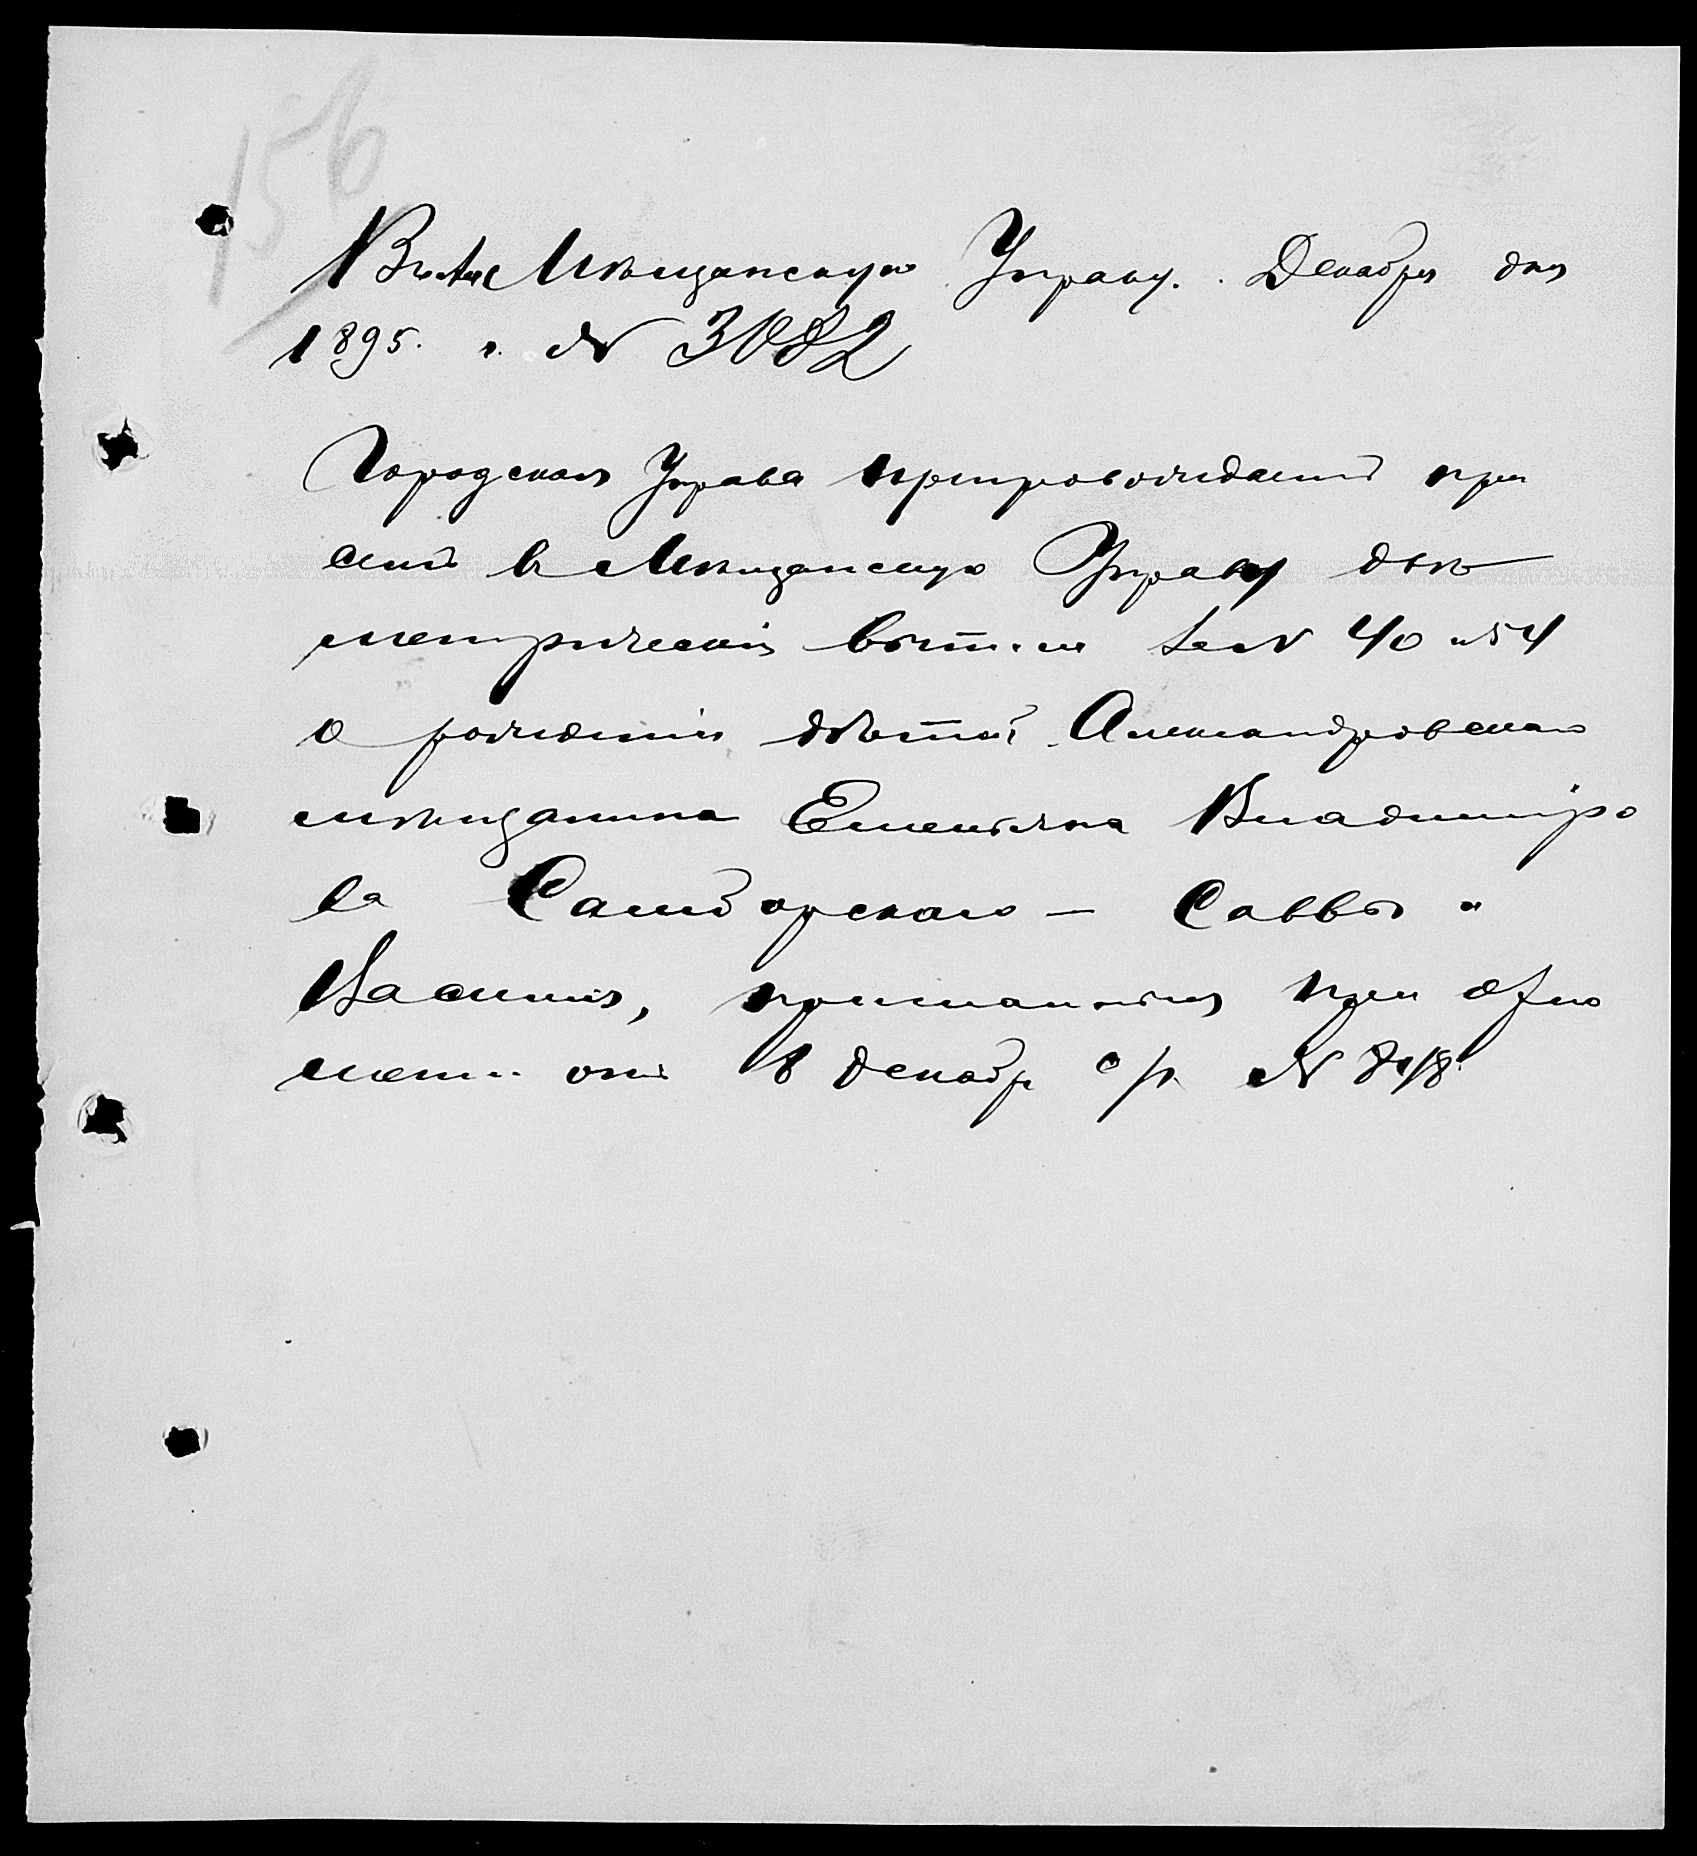 156
Въ Ал Мѣщанскую Управу. Декабря дня
1895. г. № 3082
Городская Управа препровождаетъ при
семъ въ Мѣщанскую Управу двѣ
метрическія выписи за № 40 и 54
о рожденіи дѣтей Александровскаго
мѣщанина Емельяна Владиміро
ва Самборскаго — Саввы и
Василія, присланныя при отно
шеніи отъ 8 декабр с/г. №